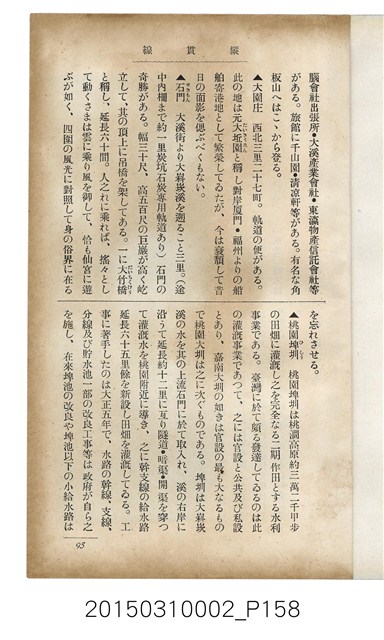 縱貫線
腦會社出張所●大溪產業會社●東瀛物產信託會社等
がある。旅館に千山園●清涼軒等がある。有名な角
板山へはこゝから登る。
▲大園庄　西北三里二十七町。軌道の便がある。
此の地は元大坵園と稱し對岸厦門●福州よりの船
舶寄港地として繁榮してゐたが、今は衰頽して昔
日の面影を偲ぶべくもない。
▲石門　大溪街より大嵙崁溪を遡ること三里。(途
中內柵まで約一里炭坑石炭専用軌道あり)　石門の
奇勝がある。幅三十尺、高五百尺の巨巖が高く屹
立して、其の頂上に吊橋を架してある。一に大竹橋
と稱し、延長六十間。人之れに乘れば、搖々とし
て動くさまは雲に乘り風を御して、恰も仙宮に遊
ぶが如く、四圍の風光に對照して身の俗界に在る
を忘れさせる。
▲桃園埤圳　桃園埤圳は桃澗高原約三萬二千甲步
の田畑に灌漑し之を完全なる二期作田とする水利
事業である。臺灣に於て頗る發達してゐるのは此
の灌漑事業であつて、之には官設と公共及び私設
とあり、嘉南大圳の如きは官設の最も大なるもの
で桃園大圳は之に次ぐものである。埤圳は大嵙崁
溪の水を其の上流石門に於て取入れ、溪の右岸に
沿うて延長約十二里に亙り隧道●暗渠●開渠を穿つ
て灌漑水を桃園附近に導き、之に幹支線の給水路
延長六十五里餘を新設し田畑を灌漑してゐる。工
事に著手したのは大正五年で、水路の幹線、支線、
分線及び貯水池一部の改良工事等は政府が自ら之
を施し、在來埤池の改良や埤池以下の小給水路は
95
20150310002_P158